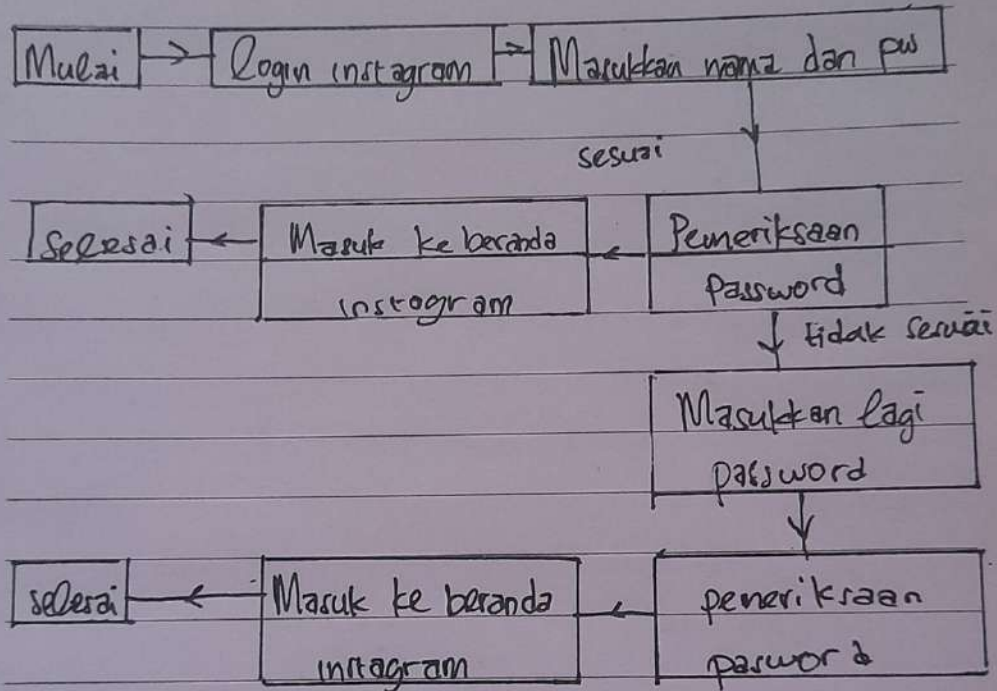 Mulai
Login instagram
Masukkan nama dan pw
sesuai
Selesai
Masuk ke beranda
instagram
Pemeriksaan
Password
tidak sesuai
Masukkan lagi
password
selesai
Masuk ke beranda
instagram
pemeriksaan
pasword